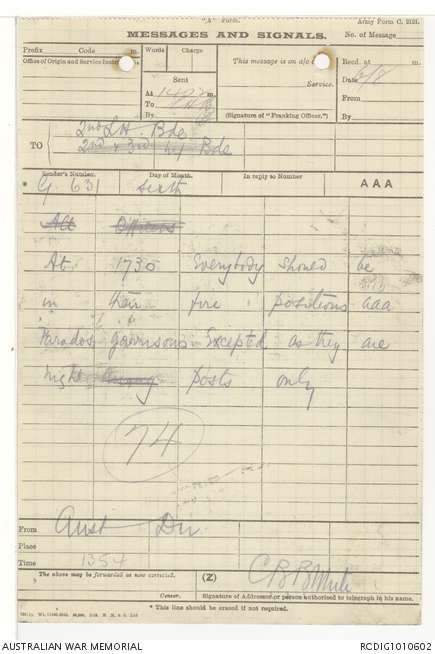 "A" Form.
Army Form C. 2121.
MESSAGES AND SIGNALS.
No. of Message
Prefix Code m.
Words Charge
This message is on a/c of
Recd. at m.
Office of Origin and Service Instructions
Sent
Service.
Date 6/8
At 1402 m.
From
To
By
(Signature of "Franking Officer.")
By
TO
2nd L.H. Bde
2nd & 3rd Inf Bde
Sender's Number. Day of Month. In reply to Number AAA
* G. 631 Sixth
All Officers
At 1730 Everybody should be
in their fire positions aaa
Parados garrisons Excepted as they are
night posts only
74
From Aust Div
Place
Time 1354
The above may be forwarded as now corrected. (Z)
Censor. Signature of Addressor or person authorised to telegraph in his name.
* This line should be erased if not required.
AUSTRALIAN WAR MEMORIAL
RCDIG1010602